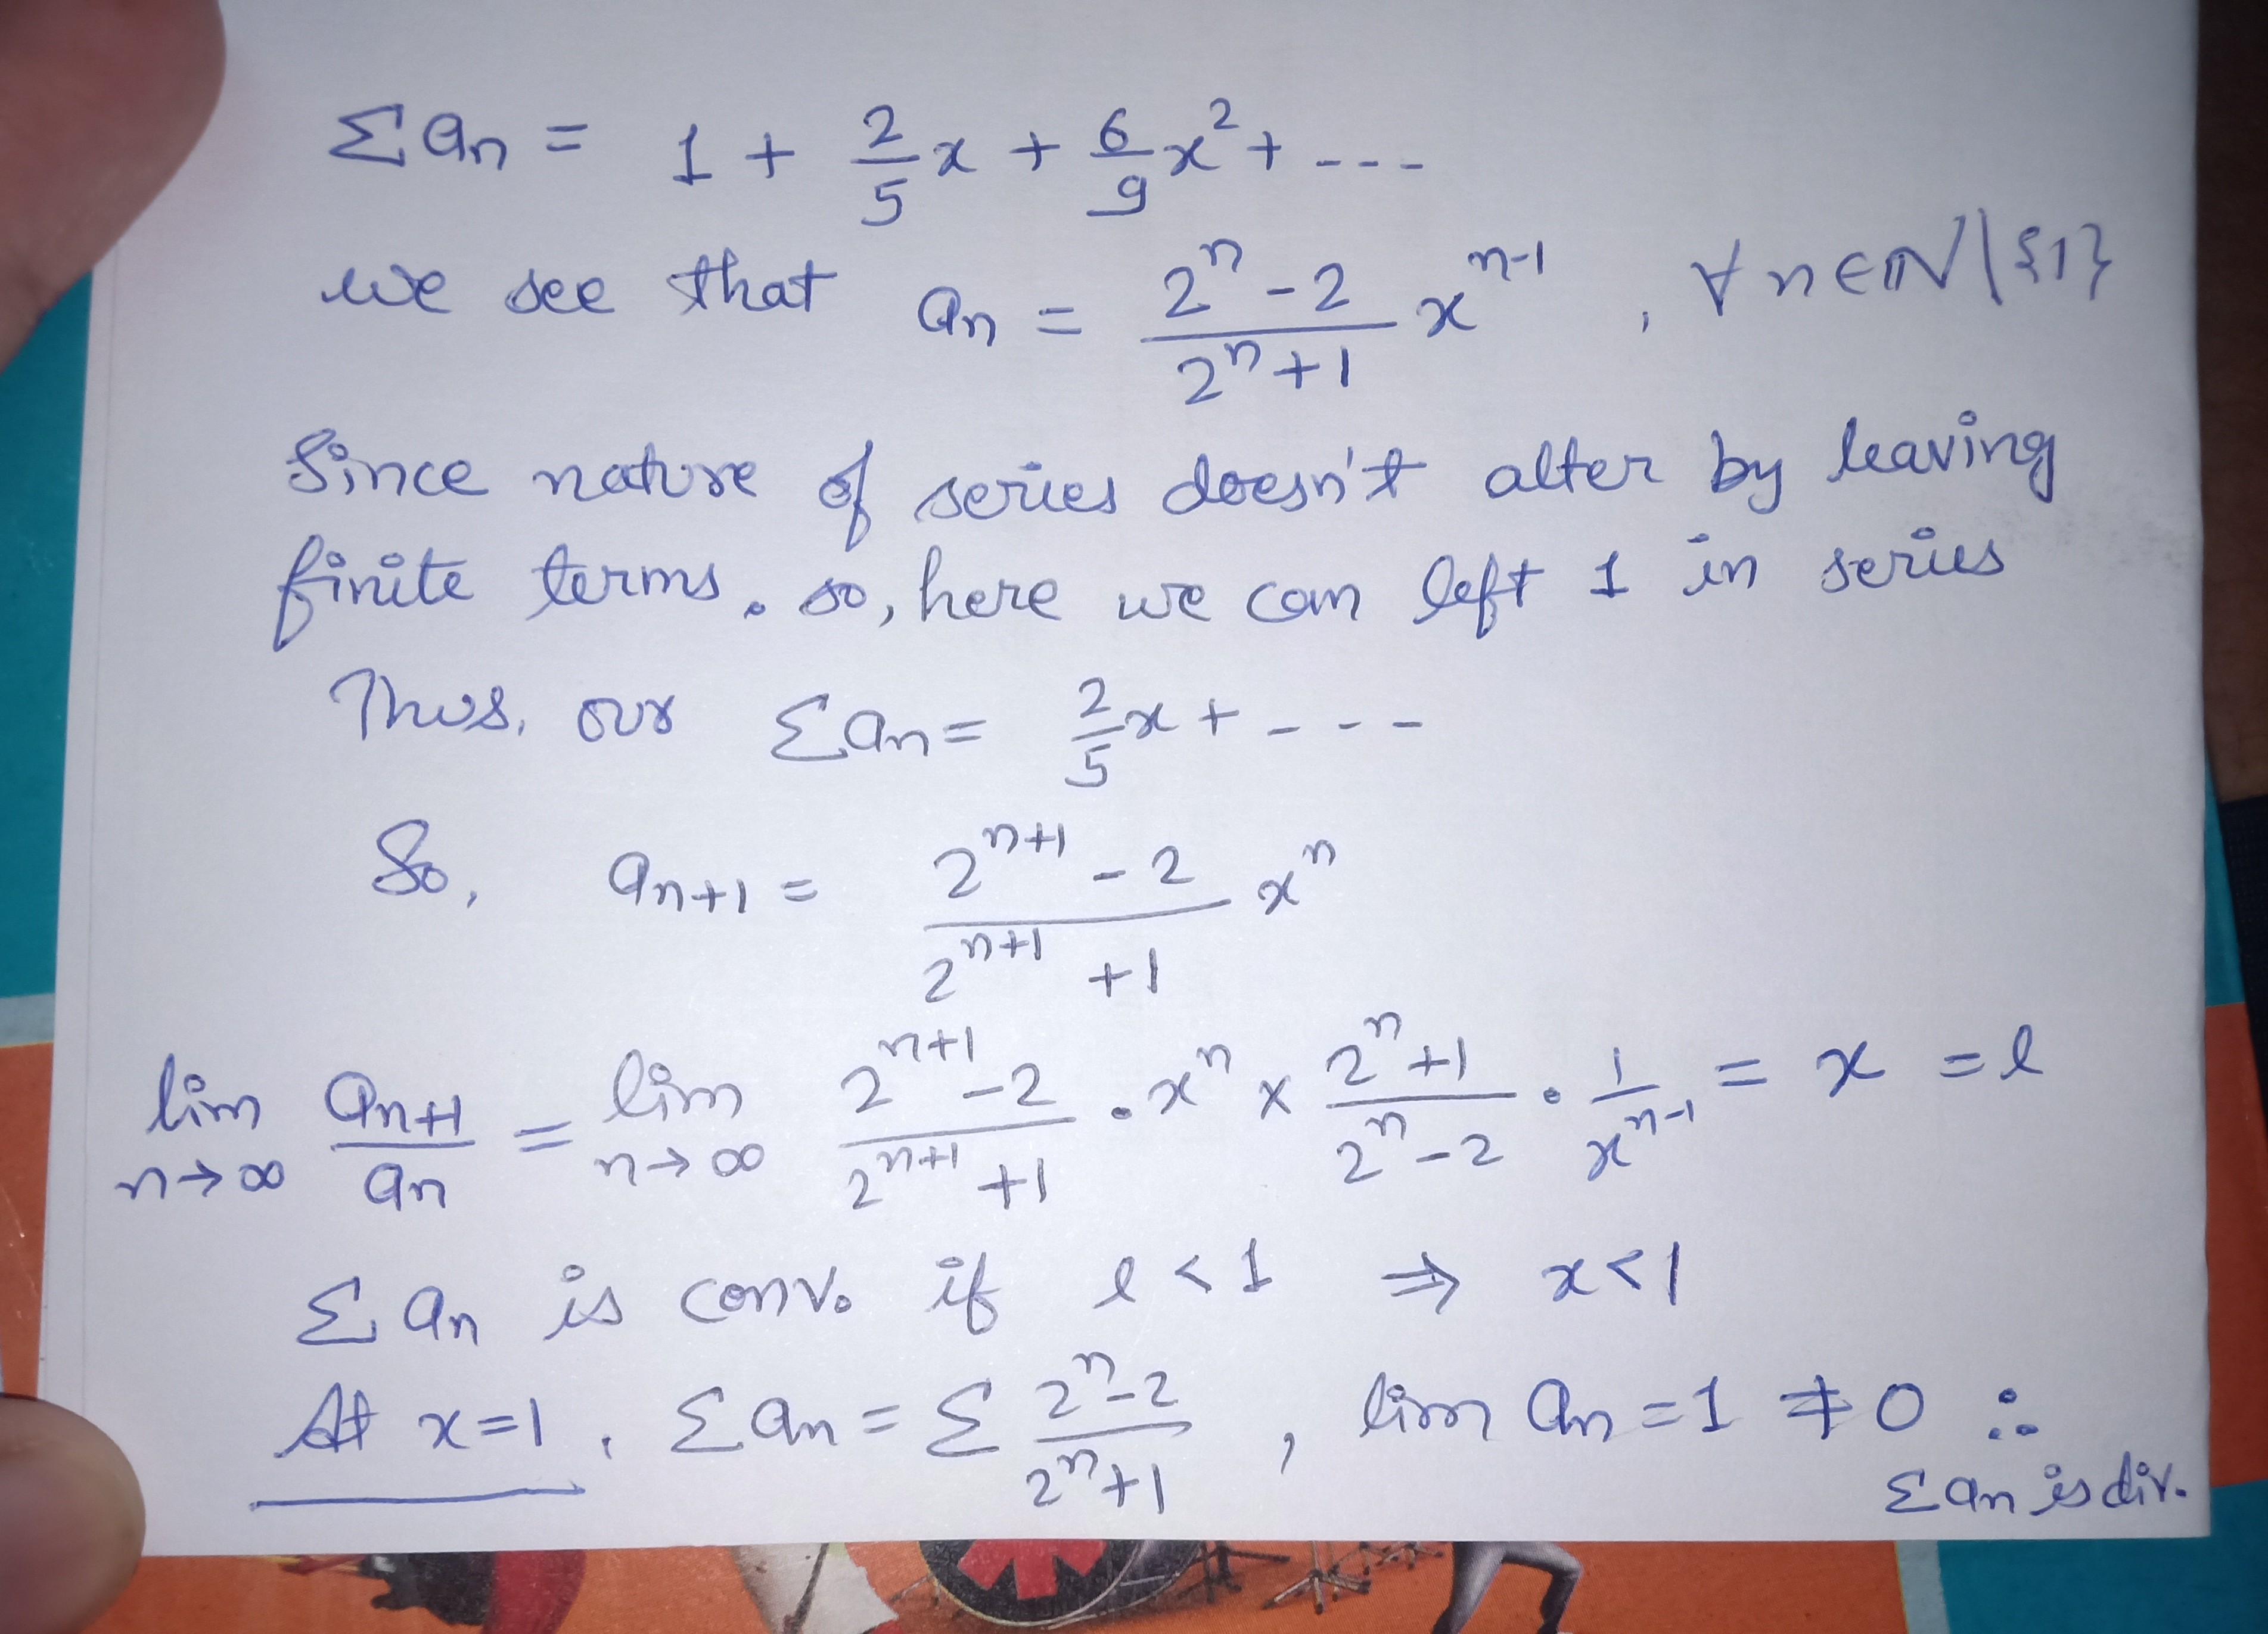 Σ an = 1 + 2/5 x + 6/9 x² + ---
we see that an = (2ⁿ - 2)/(2ⁿ + 1) xⁿ⁻¹ , ∀ n ∈ ℕ \ {1}
Since nature of series doesn't alter by leaving
finite terms. so, here we can left 1 in series
Thus, our Σ an = 2/5 x + - - -
So, an+1 = (2ⁿ⁺¹ - 2)/(2ⁿ⁺¹ + 1) xⁿ
lim n→∞ an+1/an = lim n→∞ (2ⁿ⁺¹ - 2)/(2ⁿ⁺¹ + 1) . xⁿ × (2ⁿ + 1)/(2ⁿ - 2) . 1/xⁿ⁻¹ = x = l
Σ an is conv. if l < 1 ⇒ x < 1
At x=1, Σ an = Σ (2ⁿ - 2)/(2ⁿ + 1) , lim an = 1 ≠ 0 ∴
Σ an is div.